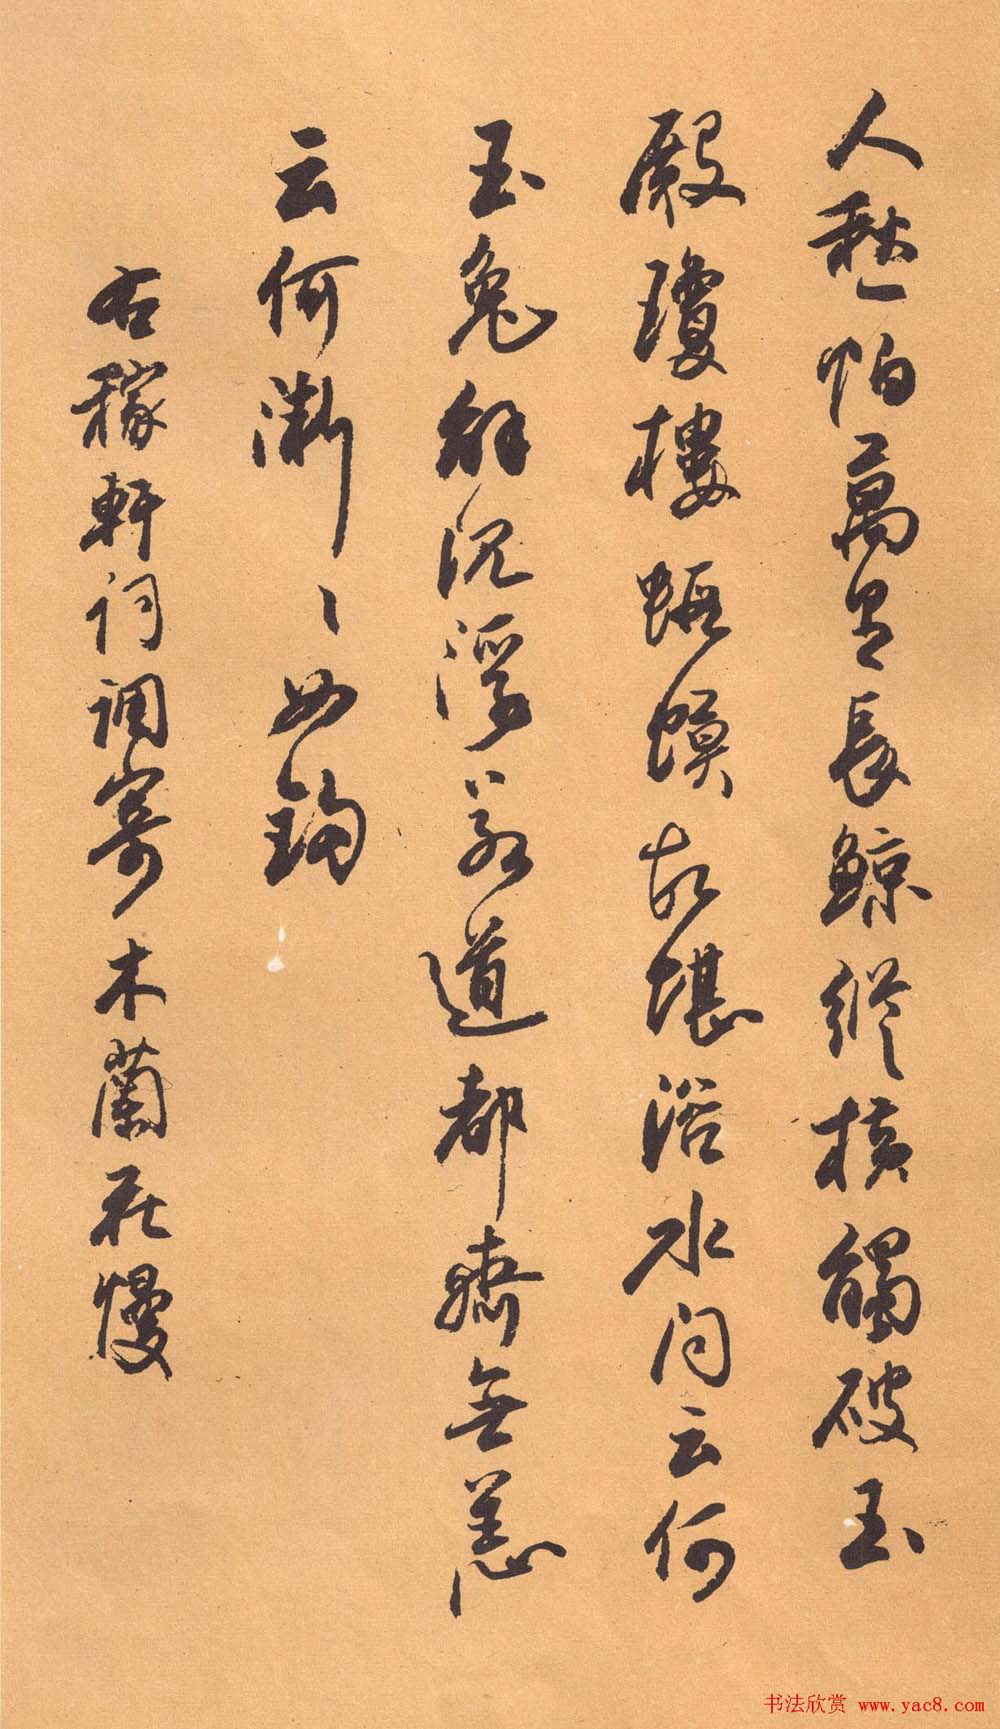 人愁怕萬里長鯨縱橫觸破玉
殿瓊樓蝦蟆故堪浴水問云何
玉兔解沉浮若道都齊無恙
云何漸〻如鈎
右稼軒詞調寄木蘭花慢
书法欣赏 www.yac8.com